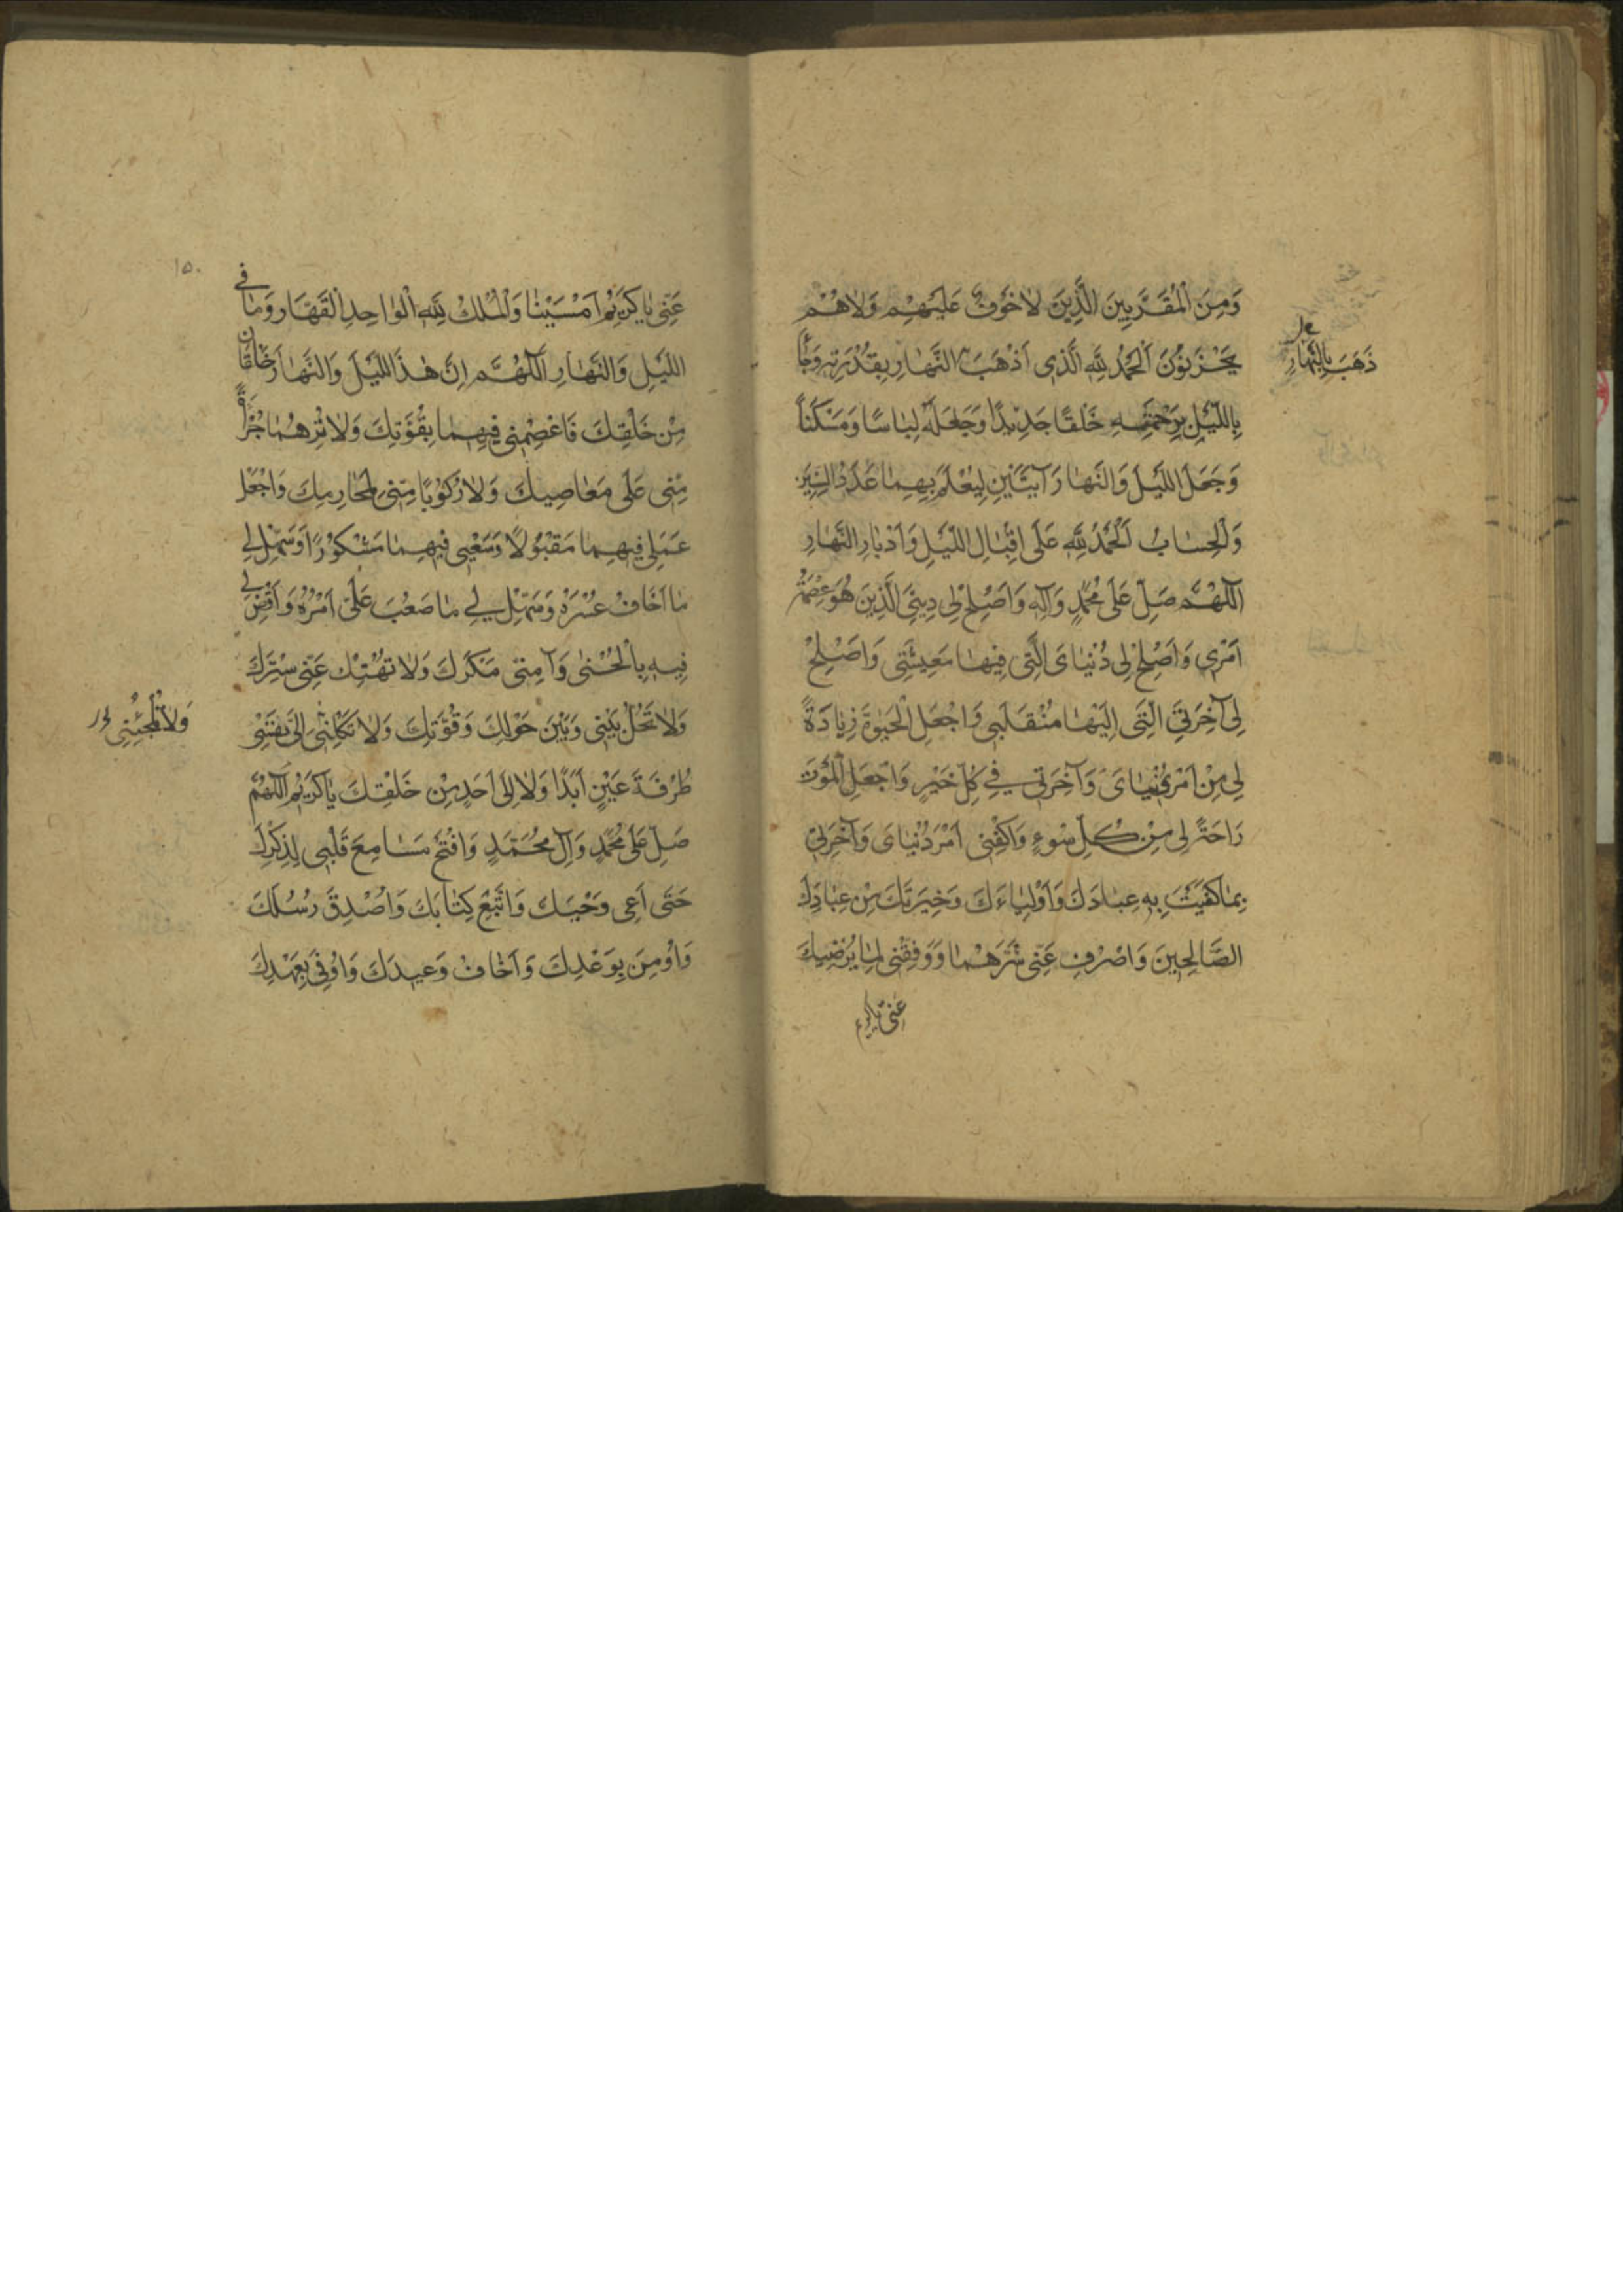 وَمِنَ الْمُقَرَّبِينَ الَّذِينَ لاٰخَوْفٌ عَلَيْهِمْ وَلاٰهُمْ
يَحْزَنُونَ اَلْحَمْدُ لِلّٰهِ الَّذِى اَذْهَبَ النَّهٰارَ بِقُدْرَتِهِ وَجٰاءَ
ذَهَبَ بِالنَّهٰارِ
بِاللَّيْلِ بِرَحْمَتِهِ خَلْقًا جَدِيدًا وَجَعَلَهُ لِبٰاسًا وَمَسْكَنًا
وَجَعَلَ اللَّيْلَ وَالنَّهٰارَ آيَتَيْنِ لِيُعْلَمَ بِهِمٰا عَدَدُ السِّنِينَ
وَالْحِسٰابُ اَلْحَمْدُ لِلّٰهِ عَلٰى اِقْبٰالِ اللَّيْلِ وَاِدْبٰارِ النَّهٰارِ
اَللّٰهُمَّ صَلِّ عَلٰى مُحَمَّدٍ وَآلِهِ وَاَصْلِحْ لِى دِينِىَ الَّذِينَ هُوَ عِصْمَةُ
اَمْرِى وَاَصْلِحْ لِى دُنْيٰاىَ الَّتِى فِيهٰا مَعِيشَتِى وَاَصْلِحْ
لِى آخِرَتِىَ الَّتِى اِلَيْهٰا مُنْقَلَبِى وَاجْعَلِ الْحَيٰوةَ زِيٰادَةً
لِى مِنْ اَمْرِ دُنْيٰاىَ وَآخِرَتِى فِى كُلِّ خَيْرٍ وَاجْعَلِ الْمَوْتَ
رَاحَةً لِى مِنْ كُلِّ سُوءٍ وَاكْفِنِى اَمْرَ دُنْيٰاىَ وَآخِرَتِى
بِمٰا كَفَيْتَ بِهِ عِبٰادَكَ وَاَوْلِيٰاءَكَ وَخِيَرَتَكَ مِنْ عِبٰادِكَ
الصّٰالِحِينَ وَاصْرِفْ عَنِّى شَرَّهُمٰا وَوَفِّقْنِى لِمٰا يُرْضِيكَ
عَنِّى يٰاكَرِيمُ
١٥٠
عَنِّى يٰاكَرِيمُ اَمْسَيْنٰا وَالْمُلْكُ لِلّٰهِ الْوٰاحِدِ الْقَهّٰارِ وَمٰا فِى
اللَّيْلِ وَالنَّهٰارِ اَللّٰهُمَّ اِنَّ هٰذَا اللَّيْلَ وَالنَّهٰارَ خَلْقٰانِ
مِنْ خَلْقِكَ فَاعْصِمْنِى فِيهِمٰا بِقُوَّتِكَ وَلاٰ تُرِهُمٰا جُرْأَةً
مِنِّى عَلٰى مَعٰاصِيكَ وَلاٰ رُكُوبًا مِنِّى لِمَحٰارِمِكَ وَاجْعَلْ
عَمَلِى فِيهِمٰا مَقْبُولاً وَسَعْيِى فِيهِمٰا مَشْكُورًا وَسَهِّلْ لِى
مٰا اَخٰافُ عُسْرَهُ وَسَهِّلْ لِى مٰا صَعُبَ عَلَىَّ اَمْرُهُ وَاقْضِ لِى
فِيهِ بِالْحُسْنٰى وَآمِنِّى مَكْرَكَ وَلاٰ تَهْتِكْ عَنِّى سِتْرَكَ
وَلاٰ تَحُلْ بَيْنِى وَبَيْنَ حَوْلِكَ وَقُوَّتِكَ وَلاٰ تَكِلْنِى اِلٰى نَفْسِى
وَلاٰ تُلْجِئْنِى
طَرْفَةَ عَيْنٍ اَبَدًا وَلاٰ اِلٰى اَحَدٍ مِنْ خَلْقِكَ يٰاكَرِيمُ اَللّٰهُمَّ
صَلِّ عَلٰى مُحَمَّدٍ وَآلِ مُحَمَّدٍ وَافْتَحْ مَسٰامِعَ قَلْبِى لِذِكْرِكَ
حَتّٰى اَعِىَ وَحْيَكَ وَاَتَّبِعَ كِتٰابَكَ وَاُصَدِّقَ رُسُلَكَ
وَاُومِنَ بِوَعْدِكَ وَاَخٰافَ وَعِيدَكَ وَاُوفِىَ بِعَهْدِكَ